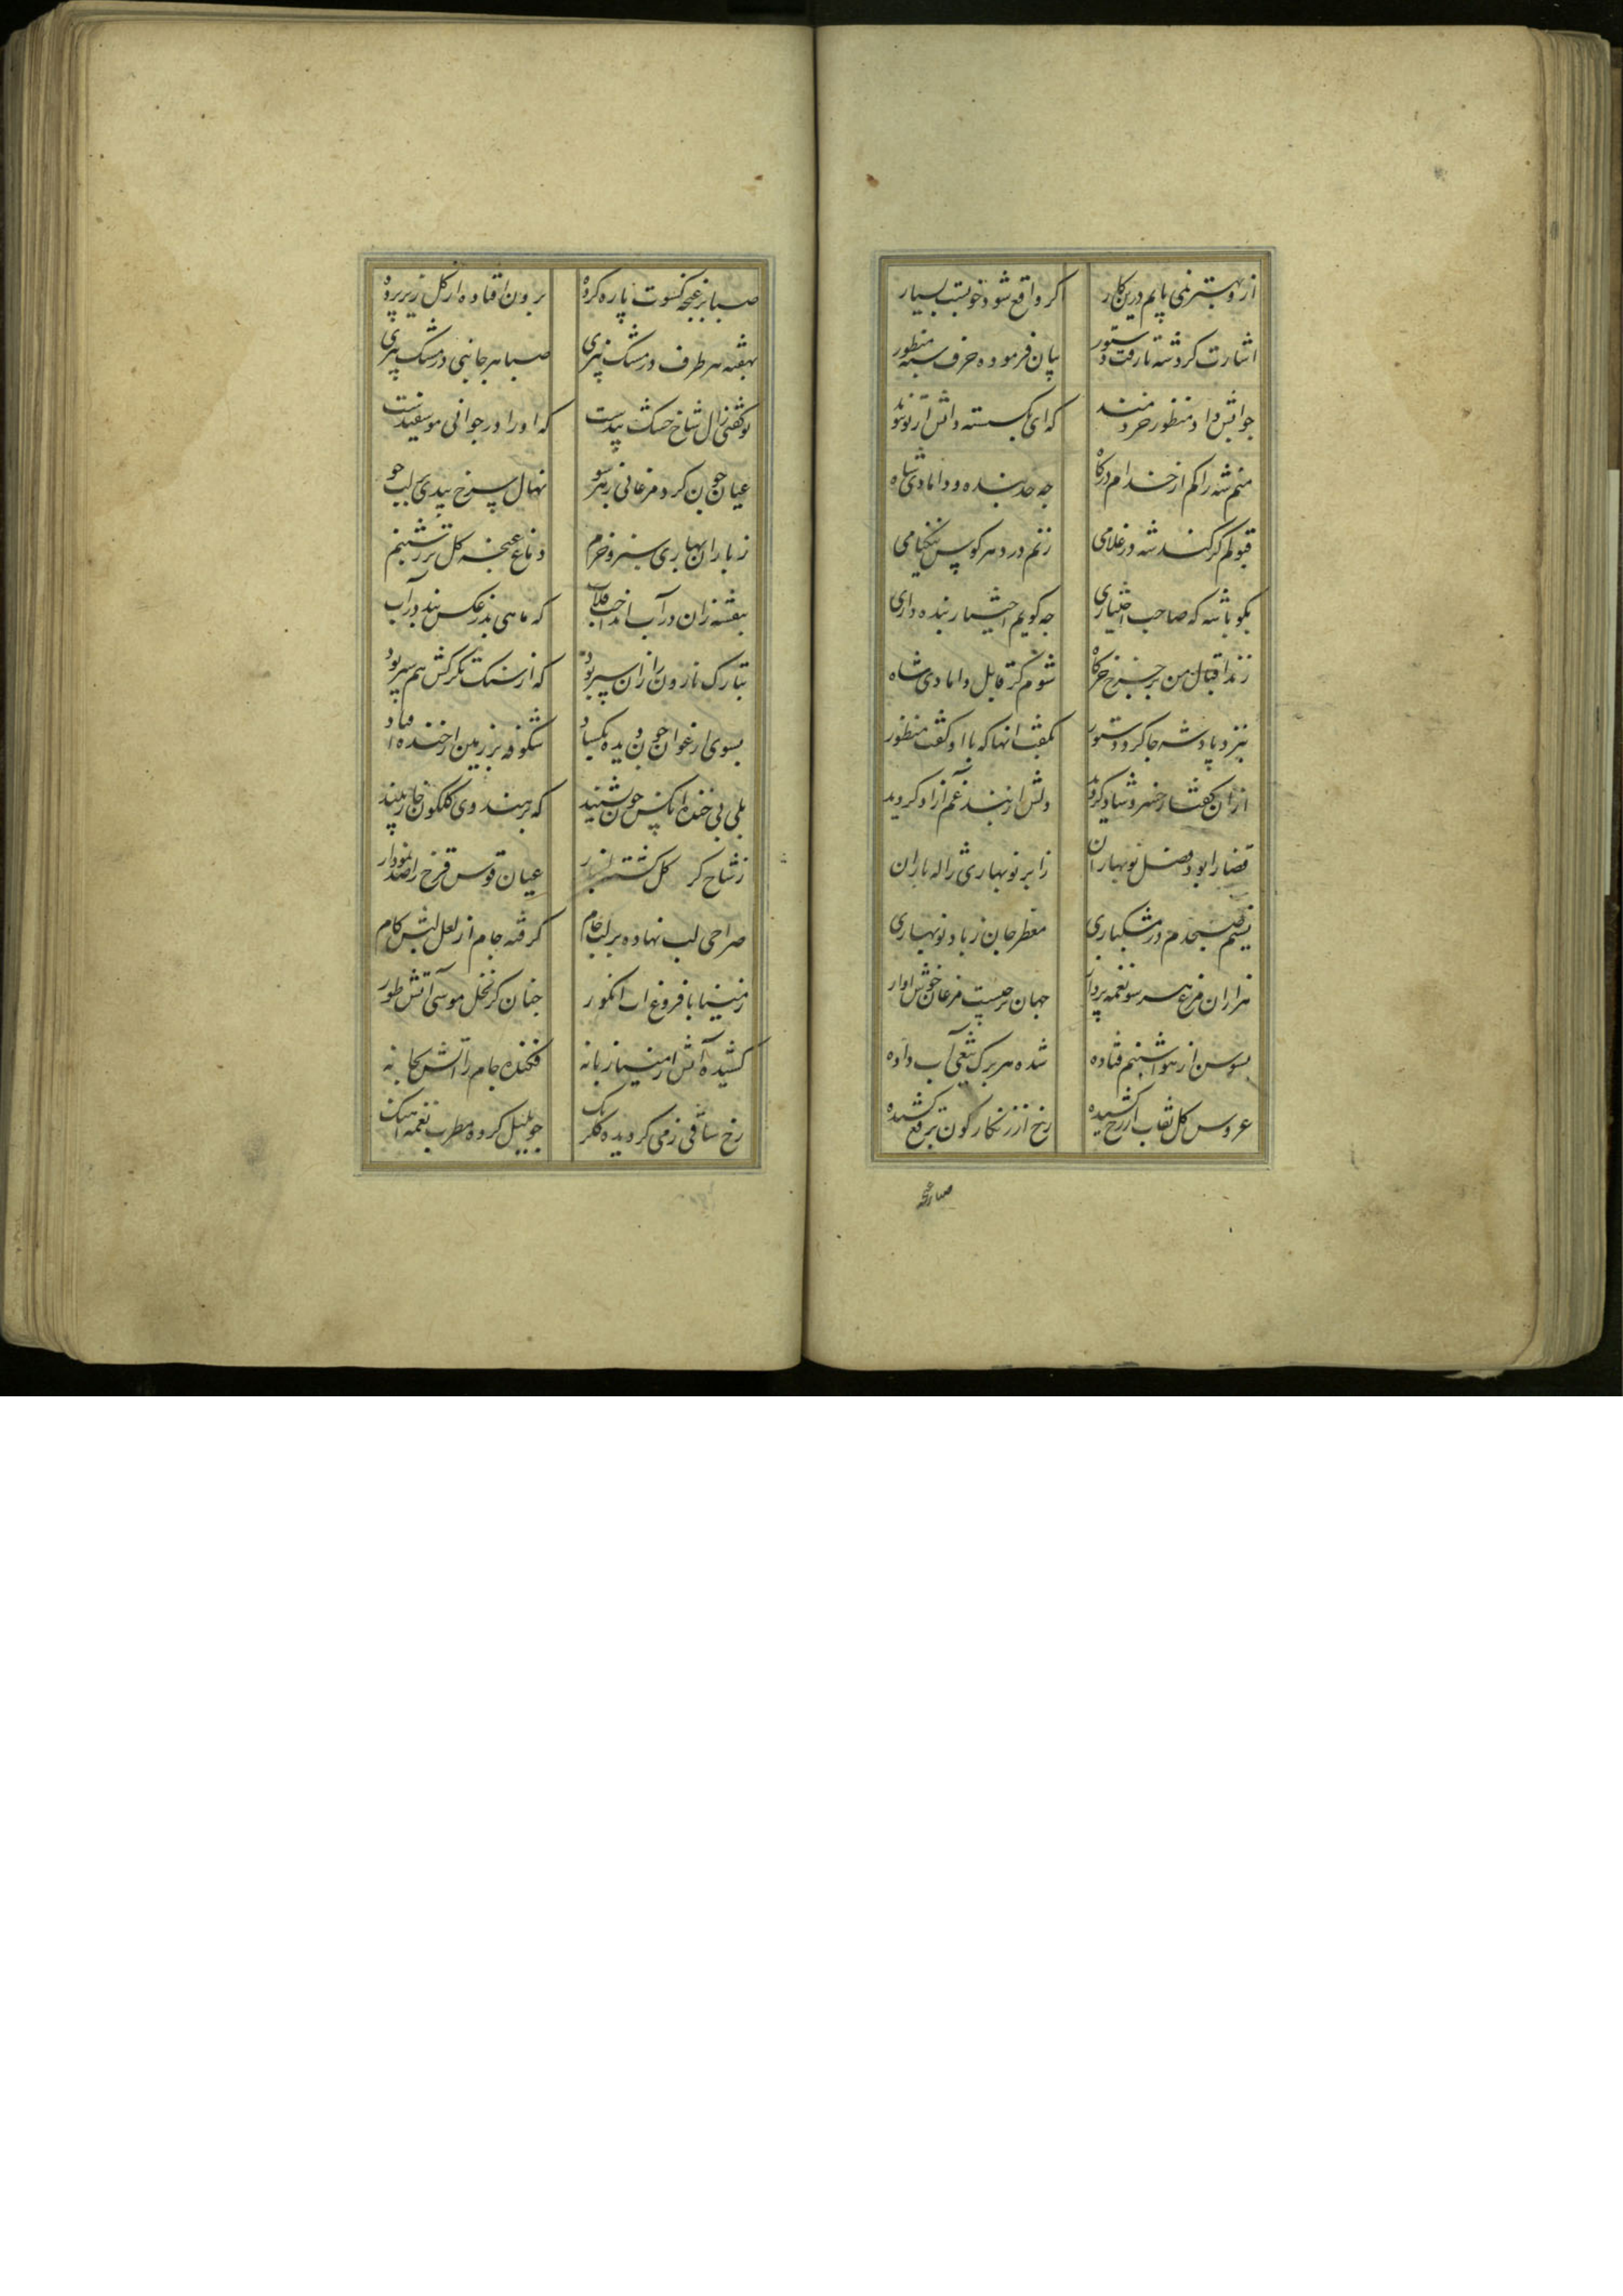 ازو بهتر نمی یابم درین کار اکر واقع شود خوبست بسیار
اشارت کرد شه تا رفت دستور بیان فرموده حرف شه بمنظور
جوابش داد منظور خردمند که ای بکسسته دانش از تو پیوند
منم شه را کم از خدام درکاه جه حد بنده و دامادی شاه
قبولم کر کند شه در غلامی زنم در دهر کوس نیکنامی
بکو با شه که صاحب اختیاری جه کویم اختیار بنده داری
زند اقبال من بر جرخ خرکاه شوم کر قابل دامادی شاه
بنزد پادشه جا کرد دستور بکفت انها که با او کفت منظور
ازان کفتار خسرو شاد کردید دلش از بند غم آزاد کردید
قضا را بود فصل نوبهاران ز ابر نوبهاری ژاله باران
نسیم صبحدم در مشکباری معطر جان ز باد نوبهاری
هزاران مرغ هر سو نغمه پرداز جهان پر صیت مرغان خوش اواز
بسوسن از هوا شبنم فتاده شده هر برک تیغی آب داده
عروس کل نقاب از رخ کشیده رخ از زنکارکون برقع کشیده
صبا بر غنجه کسوت پاره کرده برون افتاده از کل زیر پرده
بنفشه هر طرف در مشک بیزی صبا هر جانبی در مشک بیزی
تو کفتی زال شاخ خشک بیدست که او را در جوانی مو سفیدست
عیان جون کرد مرغانی ز هر سو نهال سرخ بیدی بر لب جو
ز باران بهاری سبز و خرم دماغ غنجه کل تر ز شبنم
بنفشه زان در آب انداخت قلاب که ماهی بد ز عکس بید در آب
تبارک نارون را زان سپر بود که از سنک تکرکش بیم سر بود
بسوی ارغوان جون دیده بکشاد شکوفه بر زمین از خنده افتاد
بلی بی خنده انکس جون نشیند که هندوی کلکون جار بیند
ز شاخ کل عیان قوس قزح را صد نمودار
صراحی لب نهاده بر لب جام کرفته جام از لعل لبش کام
ز مینا با فروغ اب انکور جنان کز نخل موسی آتش طور
کشیده آتش از مینا زبانه فکنده جام را آتش بخانه
رخ ساقی ز می کردیده کلرنک جو بلبل کرده مطرب نغمه اهنک
صبا بر غنجه